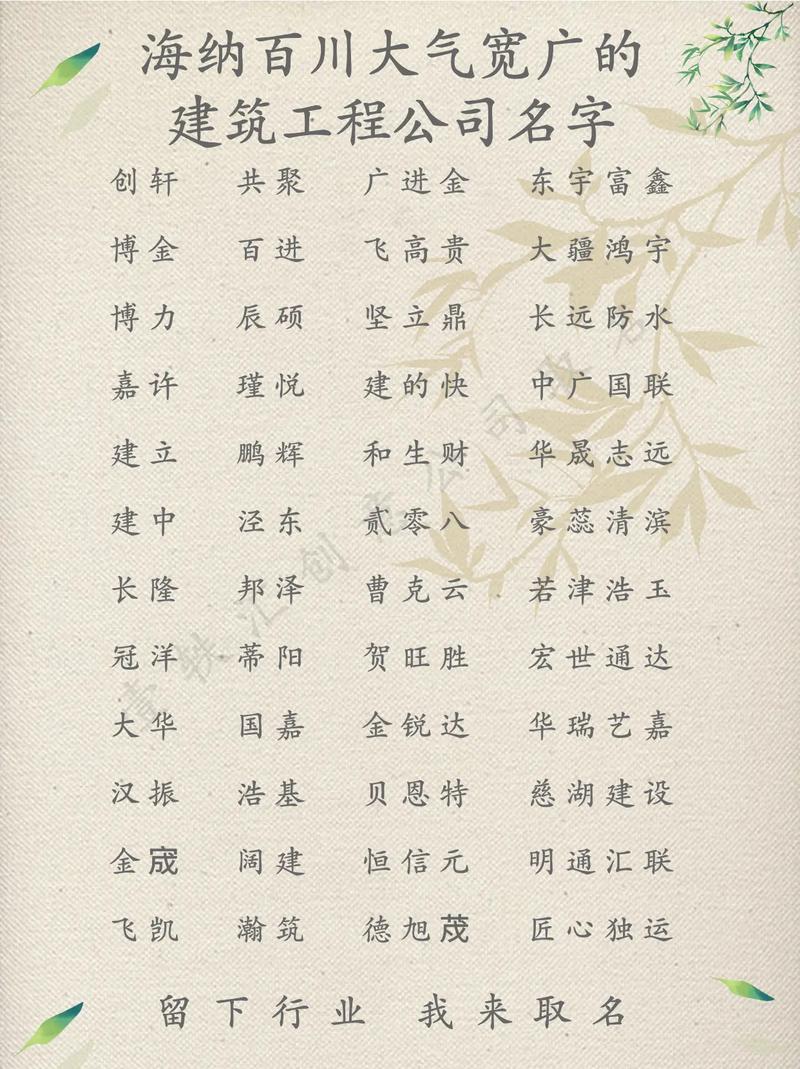 海纳百川大气宽广的
建筑工程公司名字
创轩 共聚 广进金 东宇富鑫
博金 百进 飞高贵 大疆鸿宇
博力 辰硕 坚立鼎 长远防水
嘉许 瑾悦 建的快 中广国联
建立 鹏辉 和生财 华晟志远
建中 泾东 贰零八 豪蕊清滨
长隆 邦泽 曹克云 若津浩玉
冠洋 蒂阳 贺旺胜 宏世通达
大华 国嘉 金锐达 华瑞艺嘉
汉振 浩基 贝恩特 慈湖建设
金宬 阔建 恒信元 明通汇联
飞凯 瀚筑 德旭茂 匠心独运
留下行业 我来取名